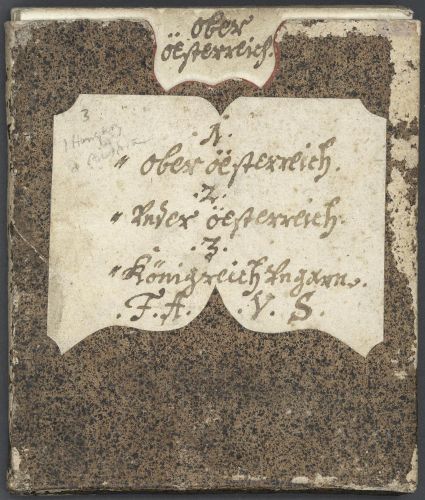 ober
öesterreich.
3
1 Hungary
2 Austria
.1.
" ober öesterreich.
.2.
" Vnder öesterreich.
.3.
" Königreich Vngarn.
. F. A. . V. S.